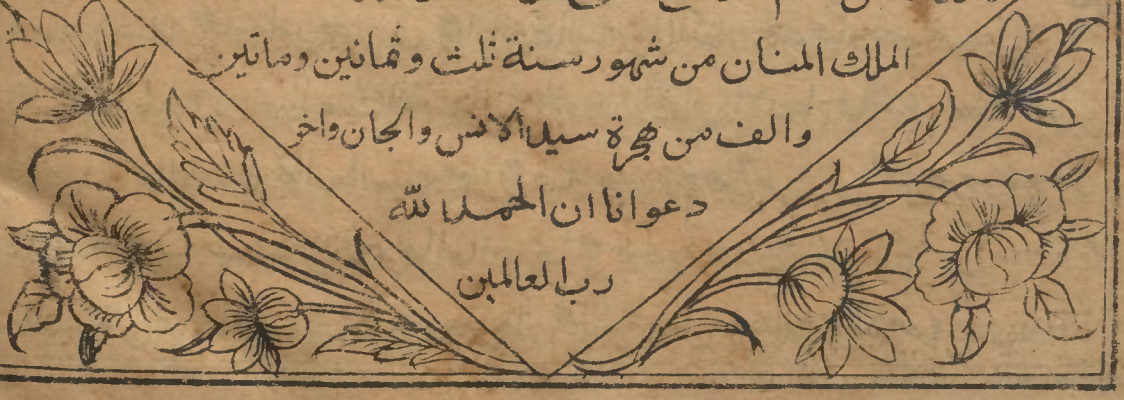 الملك المنان من شهور سنة ثلث وثمانين وماتين
والف من هجرة سيد الانس والجان واخر
دعوانا ان الحمد لله
رب العالمين